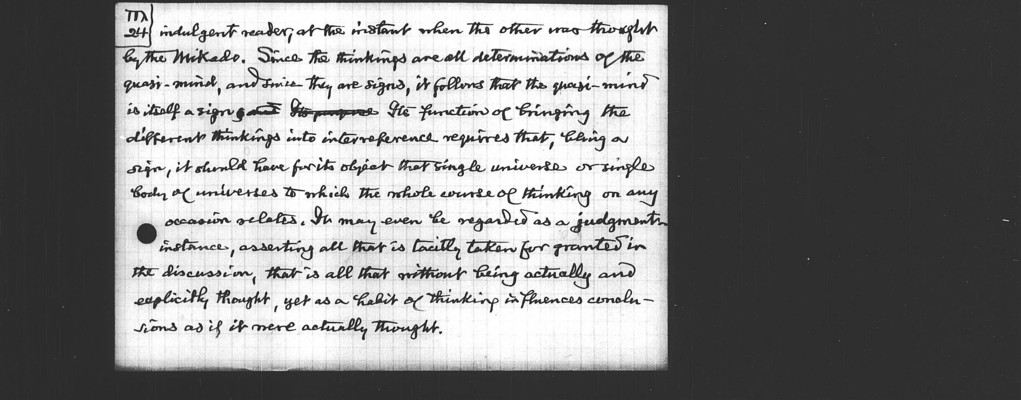 24
indulgent reader, at the instant when the other was thought
by the Mikado. Since the thinkings are all determinations of the
quasi-mind, and since they are signs, it follows that the quasi-mind
is itself a sign, and Its purpose Its function of bringing the
different thinkings into interreference requires that, being a
sign, it should have for its object that single universe or single
body of universes to which the whole course of thinking on any
occasion relates. It may even be regarded as a judgment
instance, asserting all that is tacitly taken for granted in
the discussion, that is all that without being actually and
explicitly thought, yet as a habit of thinking influences conclu-
sions as if it were actually thought.